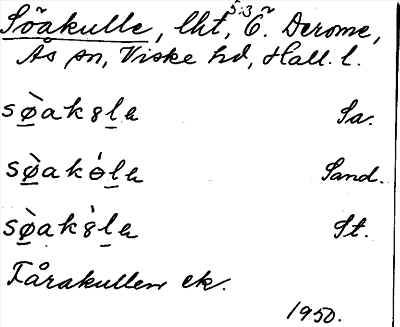 Söåkulle, lht, 5:3 Ö. Derome,
Ås sn, Viske hd, Hall. l.
sø̀ak8la Sa.
sø̀akɵ́la Sand.
sø̀ak8́la St.
Fårakullen ek.
1950.